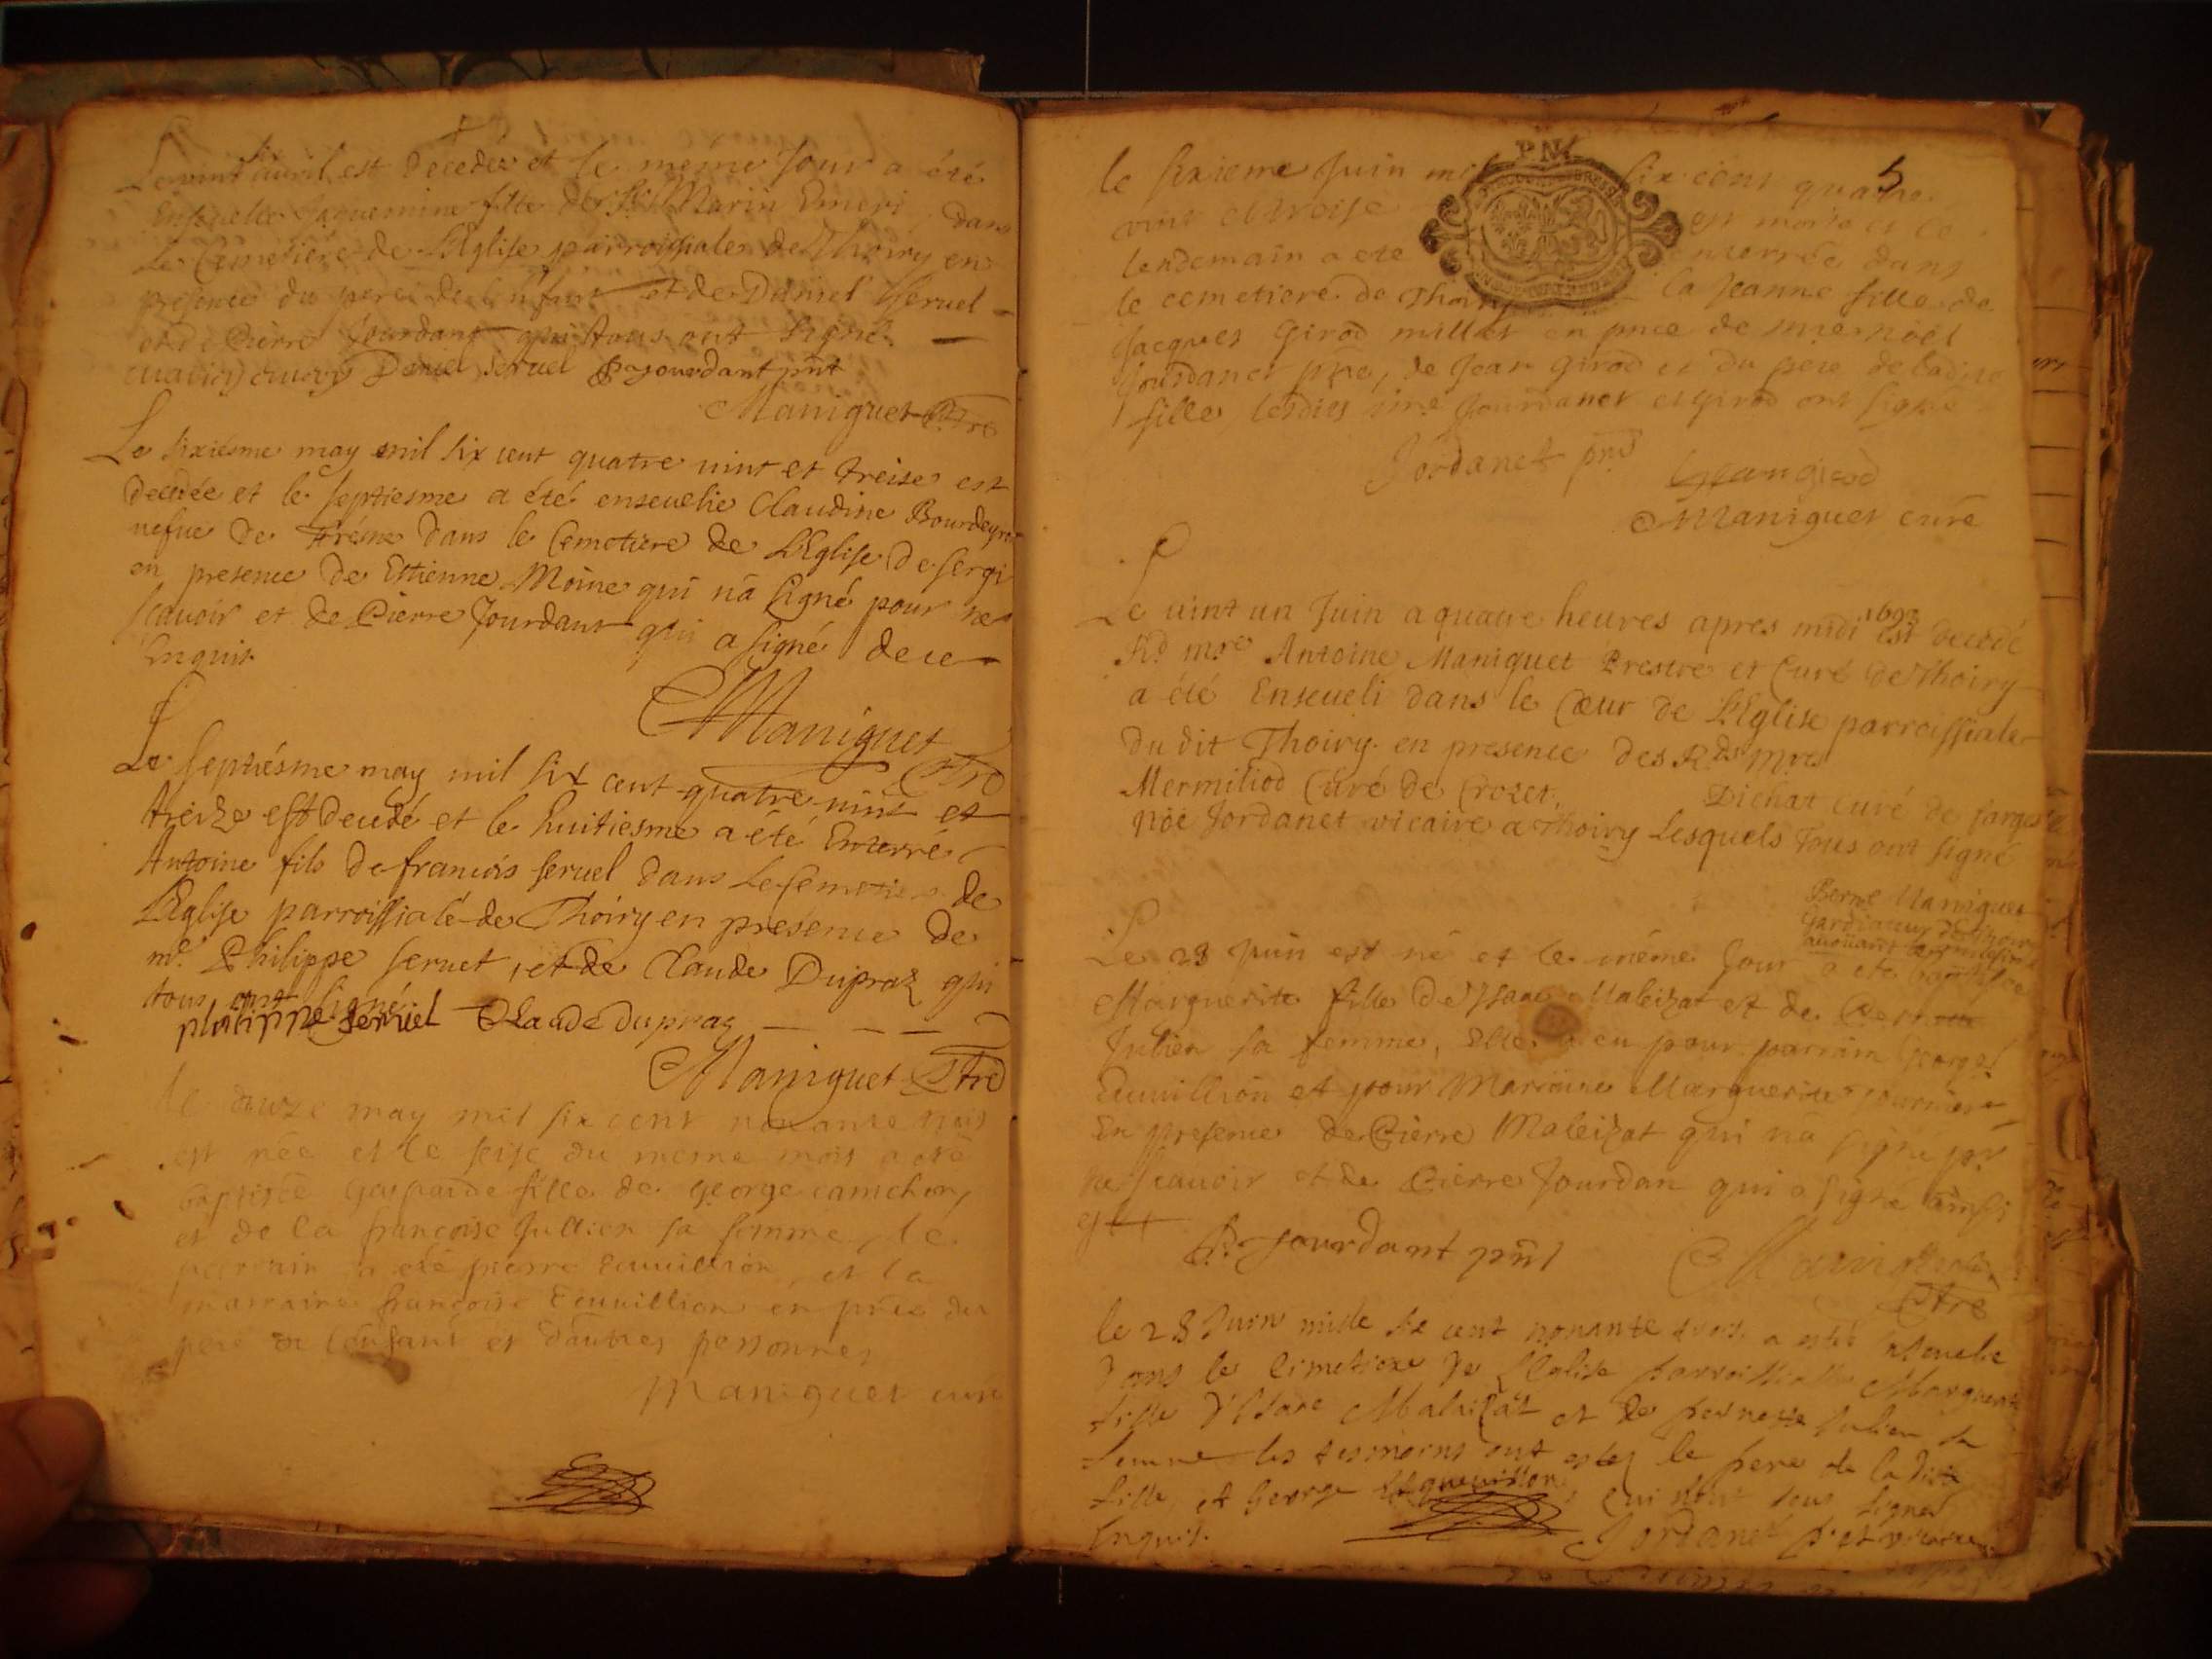 Le vint six avril est decedez et le meme Jour a été
Ensevelie Jaquemine fille de Sr Marin Emeri dans
Le Cimetiere de L'Eglise parroissiale de Thoiry en
presence du pere de l'enfant et de Daniel Seruel
et de Pierre Jourdant qui tous ont signé
Daniel seruel P jourdant pnt
Maniguet Ptre
Le sixiésme may mil six cent quatre uint et treise est
decedée et le septiesme a été enseuelie Claudine Bourdeyron
uefue de dans le Cemetiere de L'Eglise de sergi
en presence de Ettienne Moine qui na signé pour ne
scauoir et de Pierre Jourdant qui a signé de ce
Enquis
Maniguet Ptre
Le septiésme may mil six cent quatre uint et
treize est decedé et le huitiesme a été Enterré
Antoine fils de francois seruel dans Le Cemetiere de
L'Eglise parroissiale de Thoiry en presence de
me Philippe seruet, et de Claude Dupraz qui
tous ont signé
philippe seruel Claude dupraz
Maniguet Ptre
le douze may mil six cent nonante trois
est née et le seise du meme mois a eté
baptisée gasparde fille de george camchon
et de la françoise Jullien sa femme, le
parrain a eté pierre Ecuuillion, et la
marraine françoise Ecuuillion en pnce du
pere de l'enfant et d'autres personnes
Maniguet curé
5
le sixieme Juin mil six cent quatre
vint et treise est morte et le
lendemain a eté enterrée dans
le cemetiere de Thoiry la Jeanne fille de
Jacques Girod millet en pnce de mre noël
Jourdanet ptre, de Jean Girod et du pere de ladite
fille, lesdits sire Jourdanet et girod ont signé
Jordanet pnt
Jean girod
Maniguet curé
Le uint un Juin a quatre heures apres midi 1693 est decedé
Rd mre Antoine Maniguet Prestre et Curé de Thoiry
a été Enseueli dans le Cœur de L'Eglise parroissiale
du dit Thoiry. en presence des Rds mres
Mermiliod Curé de Crozet, Dichat curé de farges
noë Jordanet vicaire a Thoiry Lesquels Tous ont signé
Berne Maniguet
Le 28 Juin est né et le méme Jour a eté baptisée
Marguerite fille de Isaac Maleizat et de Pernette
Julien sa femme, Elle a eu pour parrain George
Ecuuillion et pour Marraine Marguerite fournier
En presence de Pierre Maleizat qui na signé pr
ne scauoir et de Pierre Jourdan qui a signé ainsi
P. Jourdant pnt
Ptre
le 28 Juin mille six cent nonante trois a esté enseuelie
dans le Cimetiere de L'Eglise parroissialle Marguerite
fille d'Isaac Maleizat et de pernette Julien sa
femme les tesmoins ont estez le pere de la dite
fille, et George Ecquevillon qui n'ont sceu signer
Enquis.
Jordanet ptre vicaire